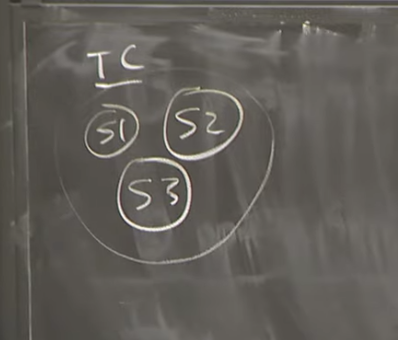 TC
S1 S2
S3